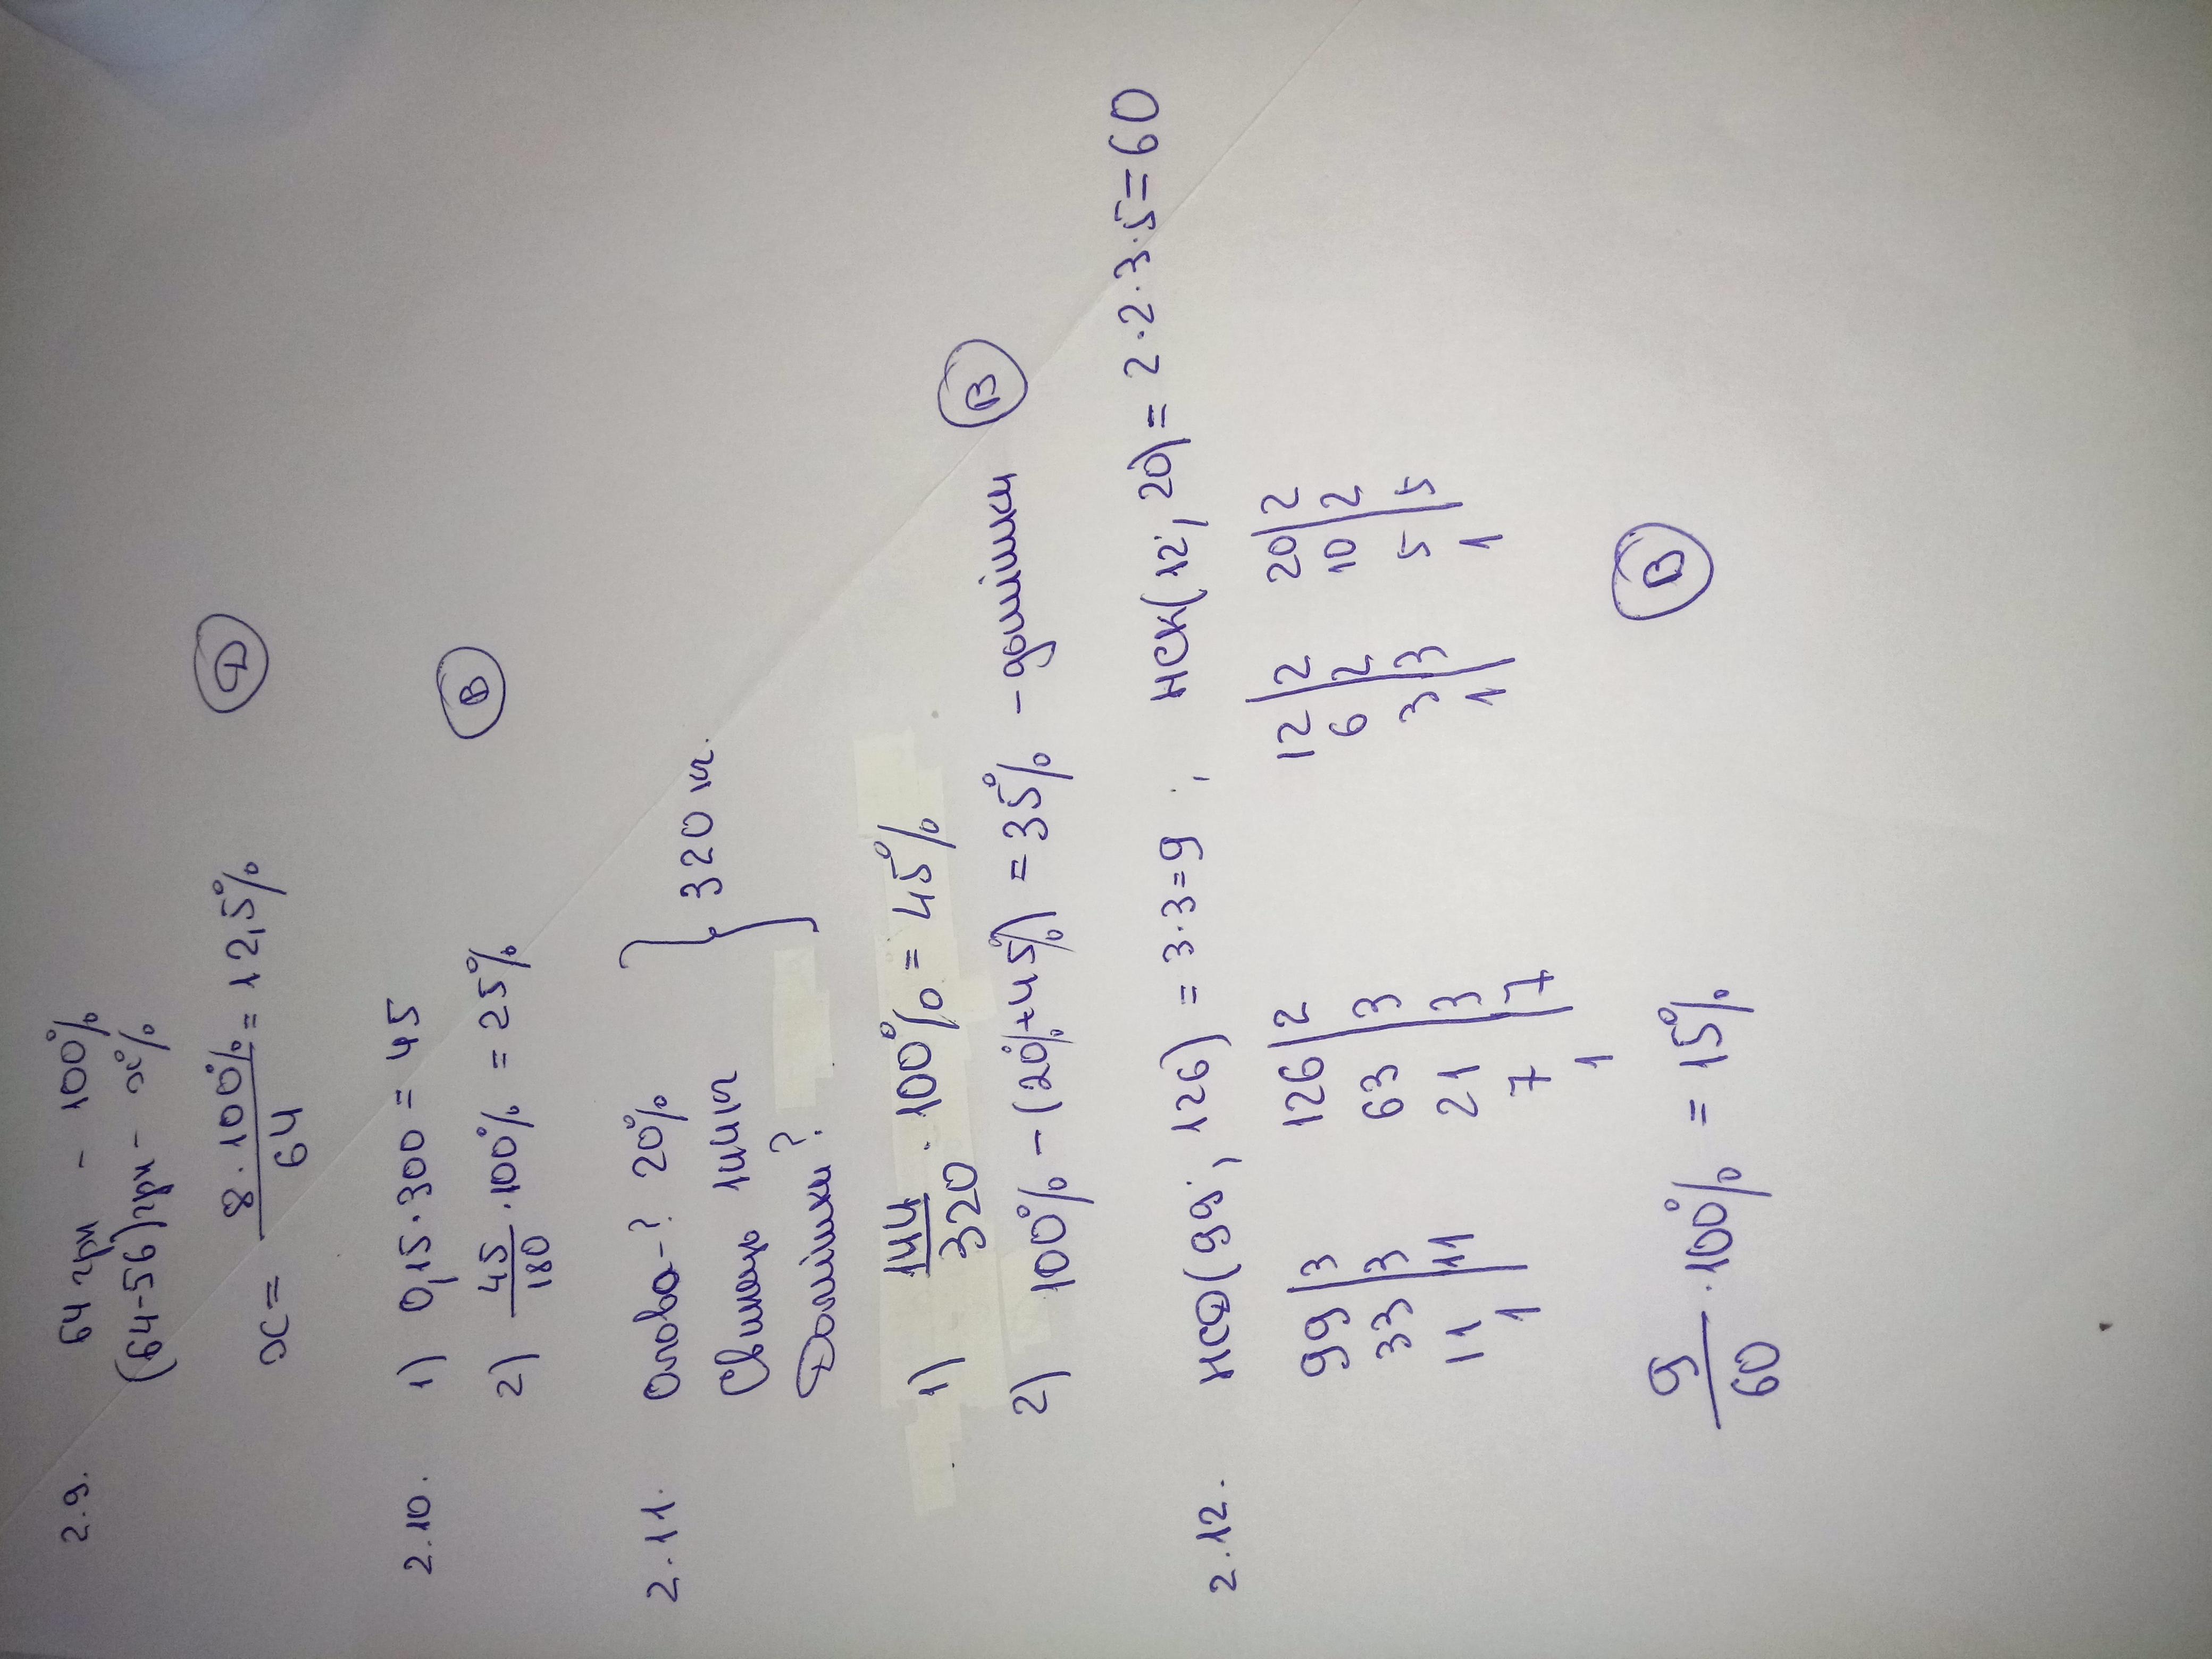 2.9. 64 грн - 100%
(64-56) грн - x%
x = 8 · 100% / 64 = 12,5% Д
2.10. 1) 0,15 · 300 = 45
2) 45/180 · 100% = 25% В
2.11. Олово - ? 20%
Свинець 144 кг } 320 кг.
Домішки ?
1) 144/320 · 100% = 45%
2) 100% - (20% + 45%) = 35% - домішки В
2.12. НСД(99; 126) = 3·3=9 ; НСК(12; 20) = 2·2·3·5=60
99|3 126|2 12|2 20|2
33|3 63|3 6|2 10|2
11|11 21|3 3|3 5|5
1 7|7 1 1
1
9/60 · 100% = 15%